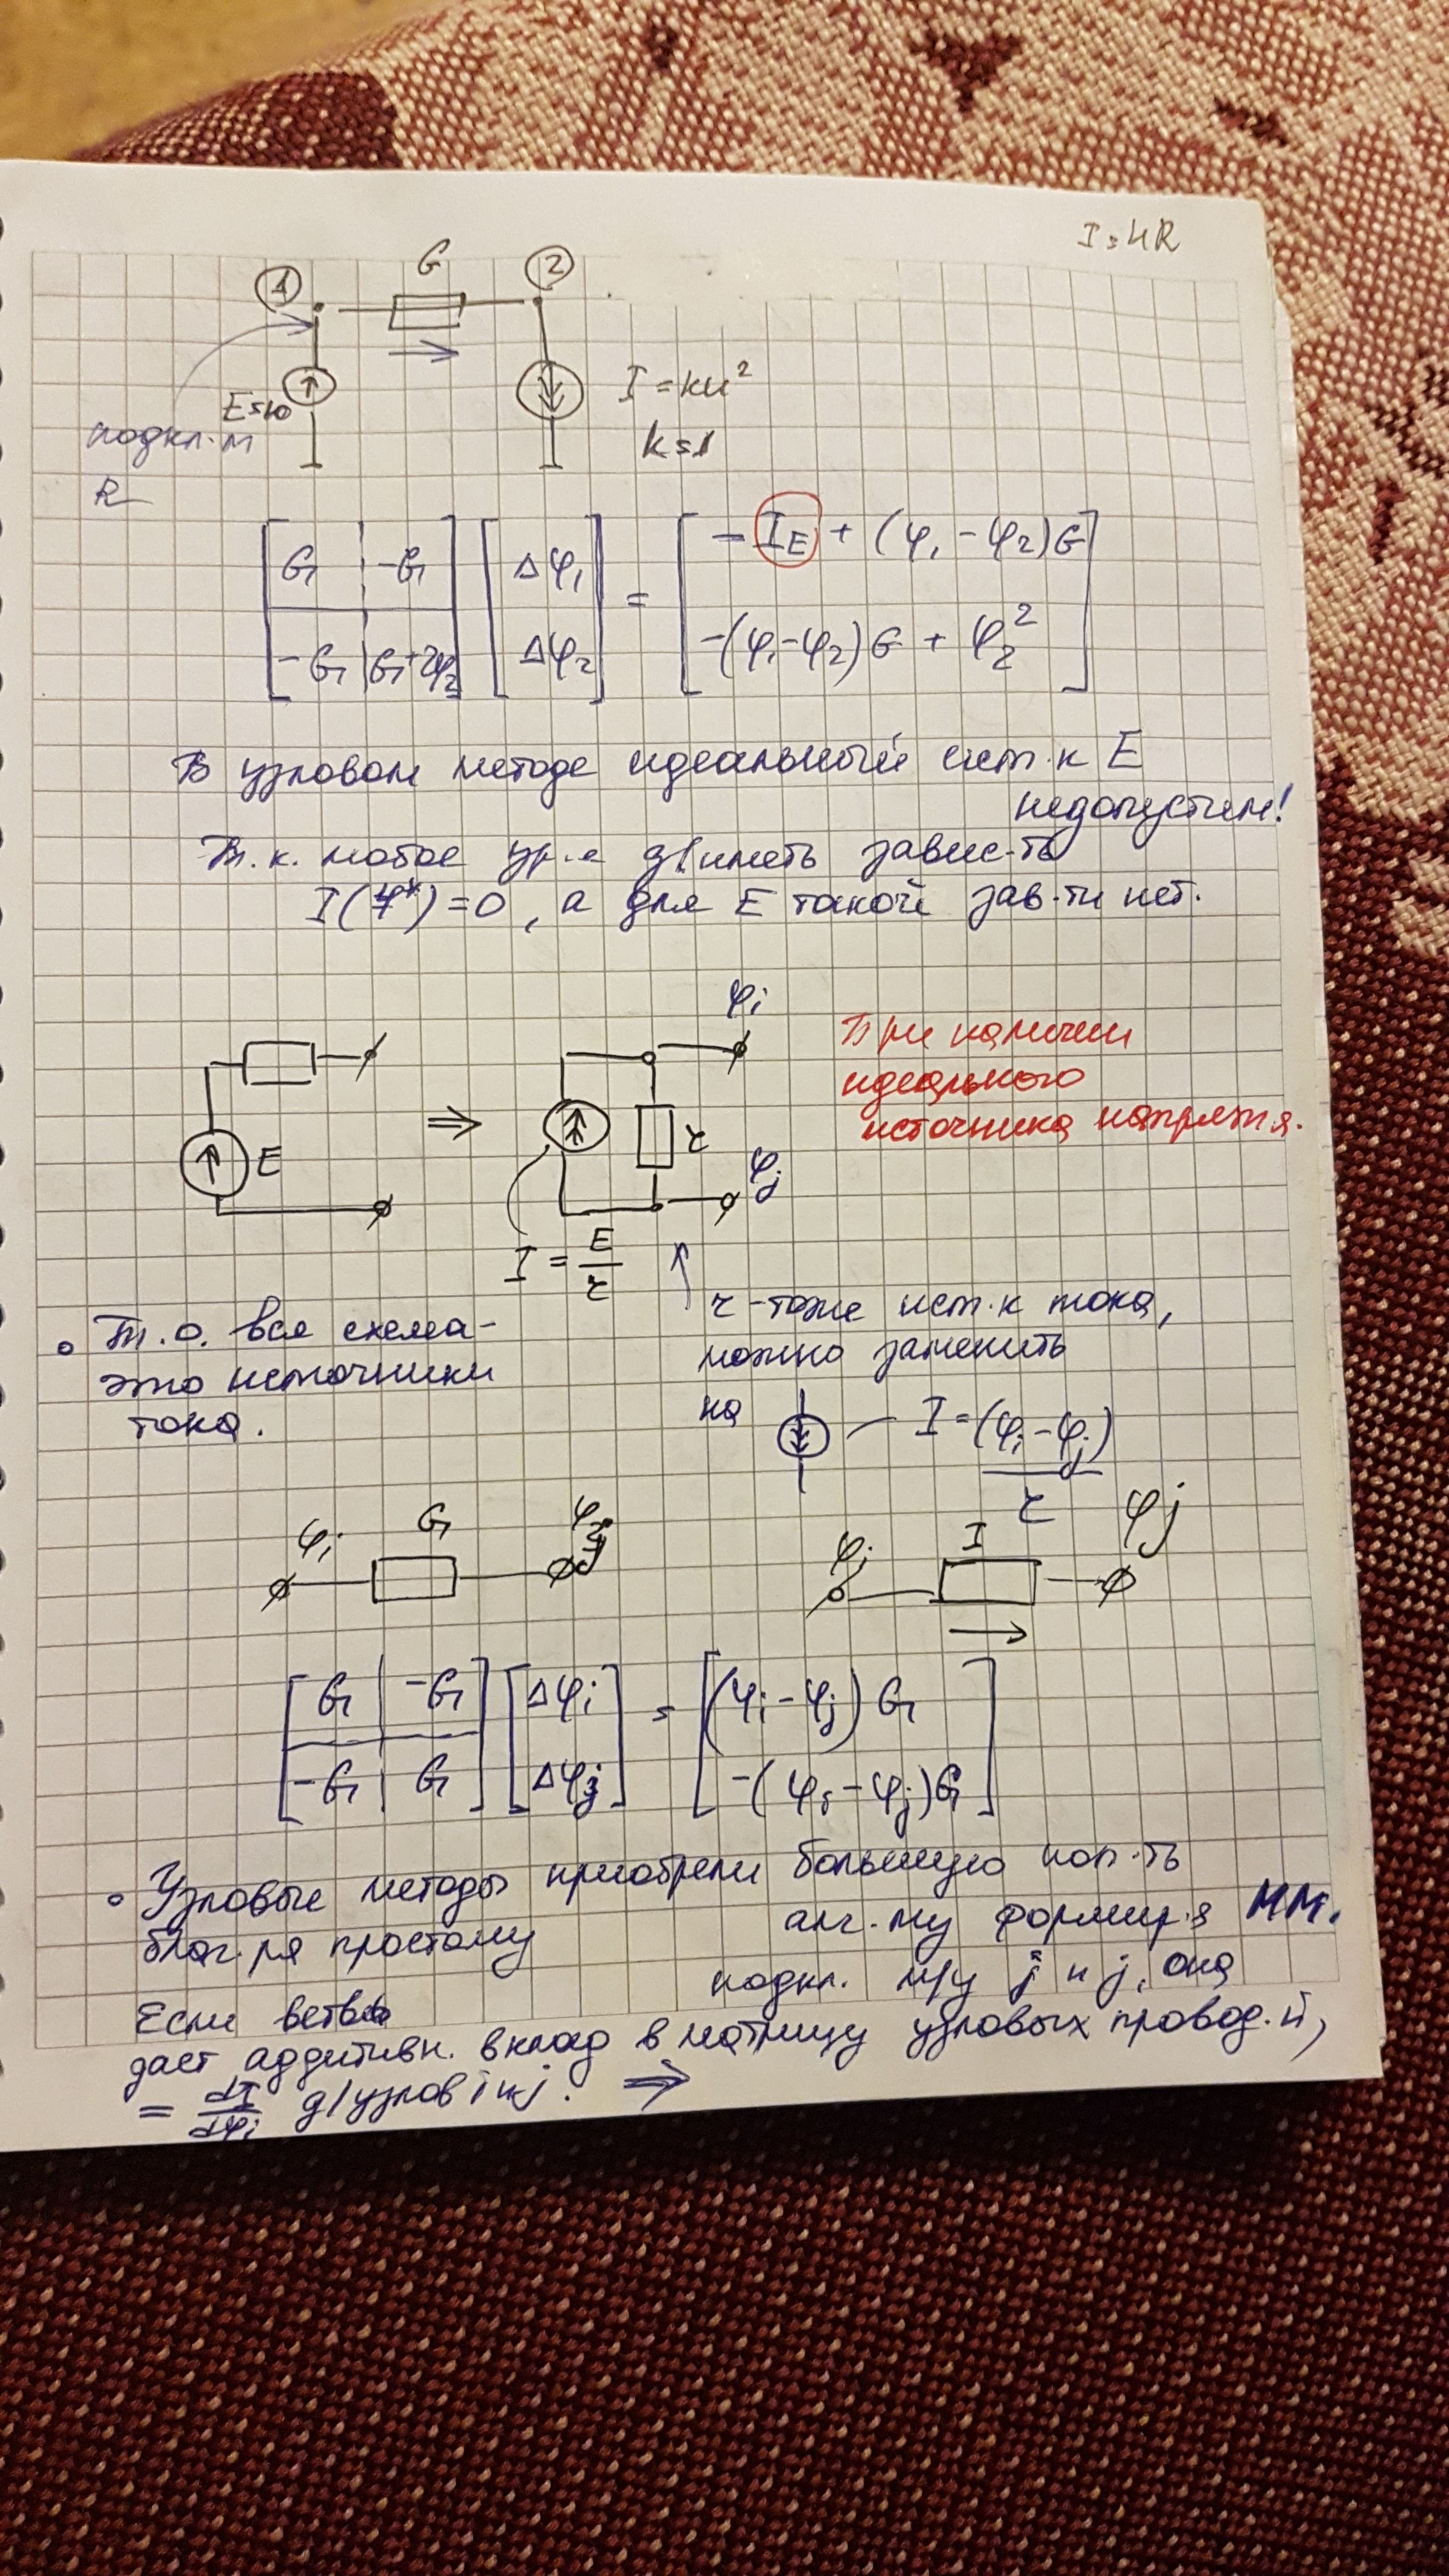 I = UR
① G ②
E=10
I = ku²
k=1
подкл. м
R
[G | -G; -G | G+2φ₂] [Δφ₁; Δφ₂] = [-I_E + (φ₁ - φ₂)G; -(φ₁-φ₂)G + φ₂²]
В узловом методе идеальный ист.к E
недопустим!
Т.к. любое ур.е д/иметь завис-ть
I(φ*)=0, а для E такой зав-ти нет.
φi
При наличии
идеального
источника напряж-я.
E ⇒ r
φj
I = E/r
r - тоже ист.к тока,
можно заменить
на I = (φi - φj)/r
Т.о. вся схема -
это источники
тока.
φi G φj
φi I φj
[G | -G; -G | G] [Δφi; Δφj] = [(φi - φj) G; -(φi - φj)G]
Узловые методы приобрели большую поп-ть
благ-ря простому алг-му формир-я ММ.
Если ветвь подкл. м/у i и j, она
дает аддитивн. вклад в матрицу узловых провод.й,
= dI/dφi д/узлов i и j. ⇒